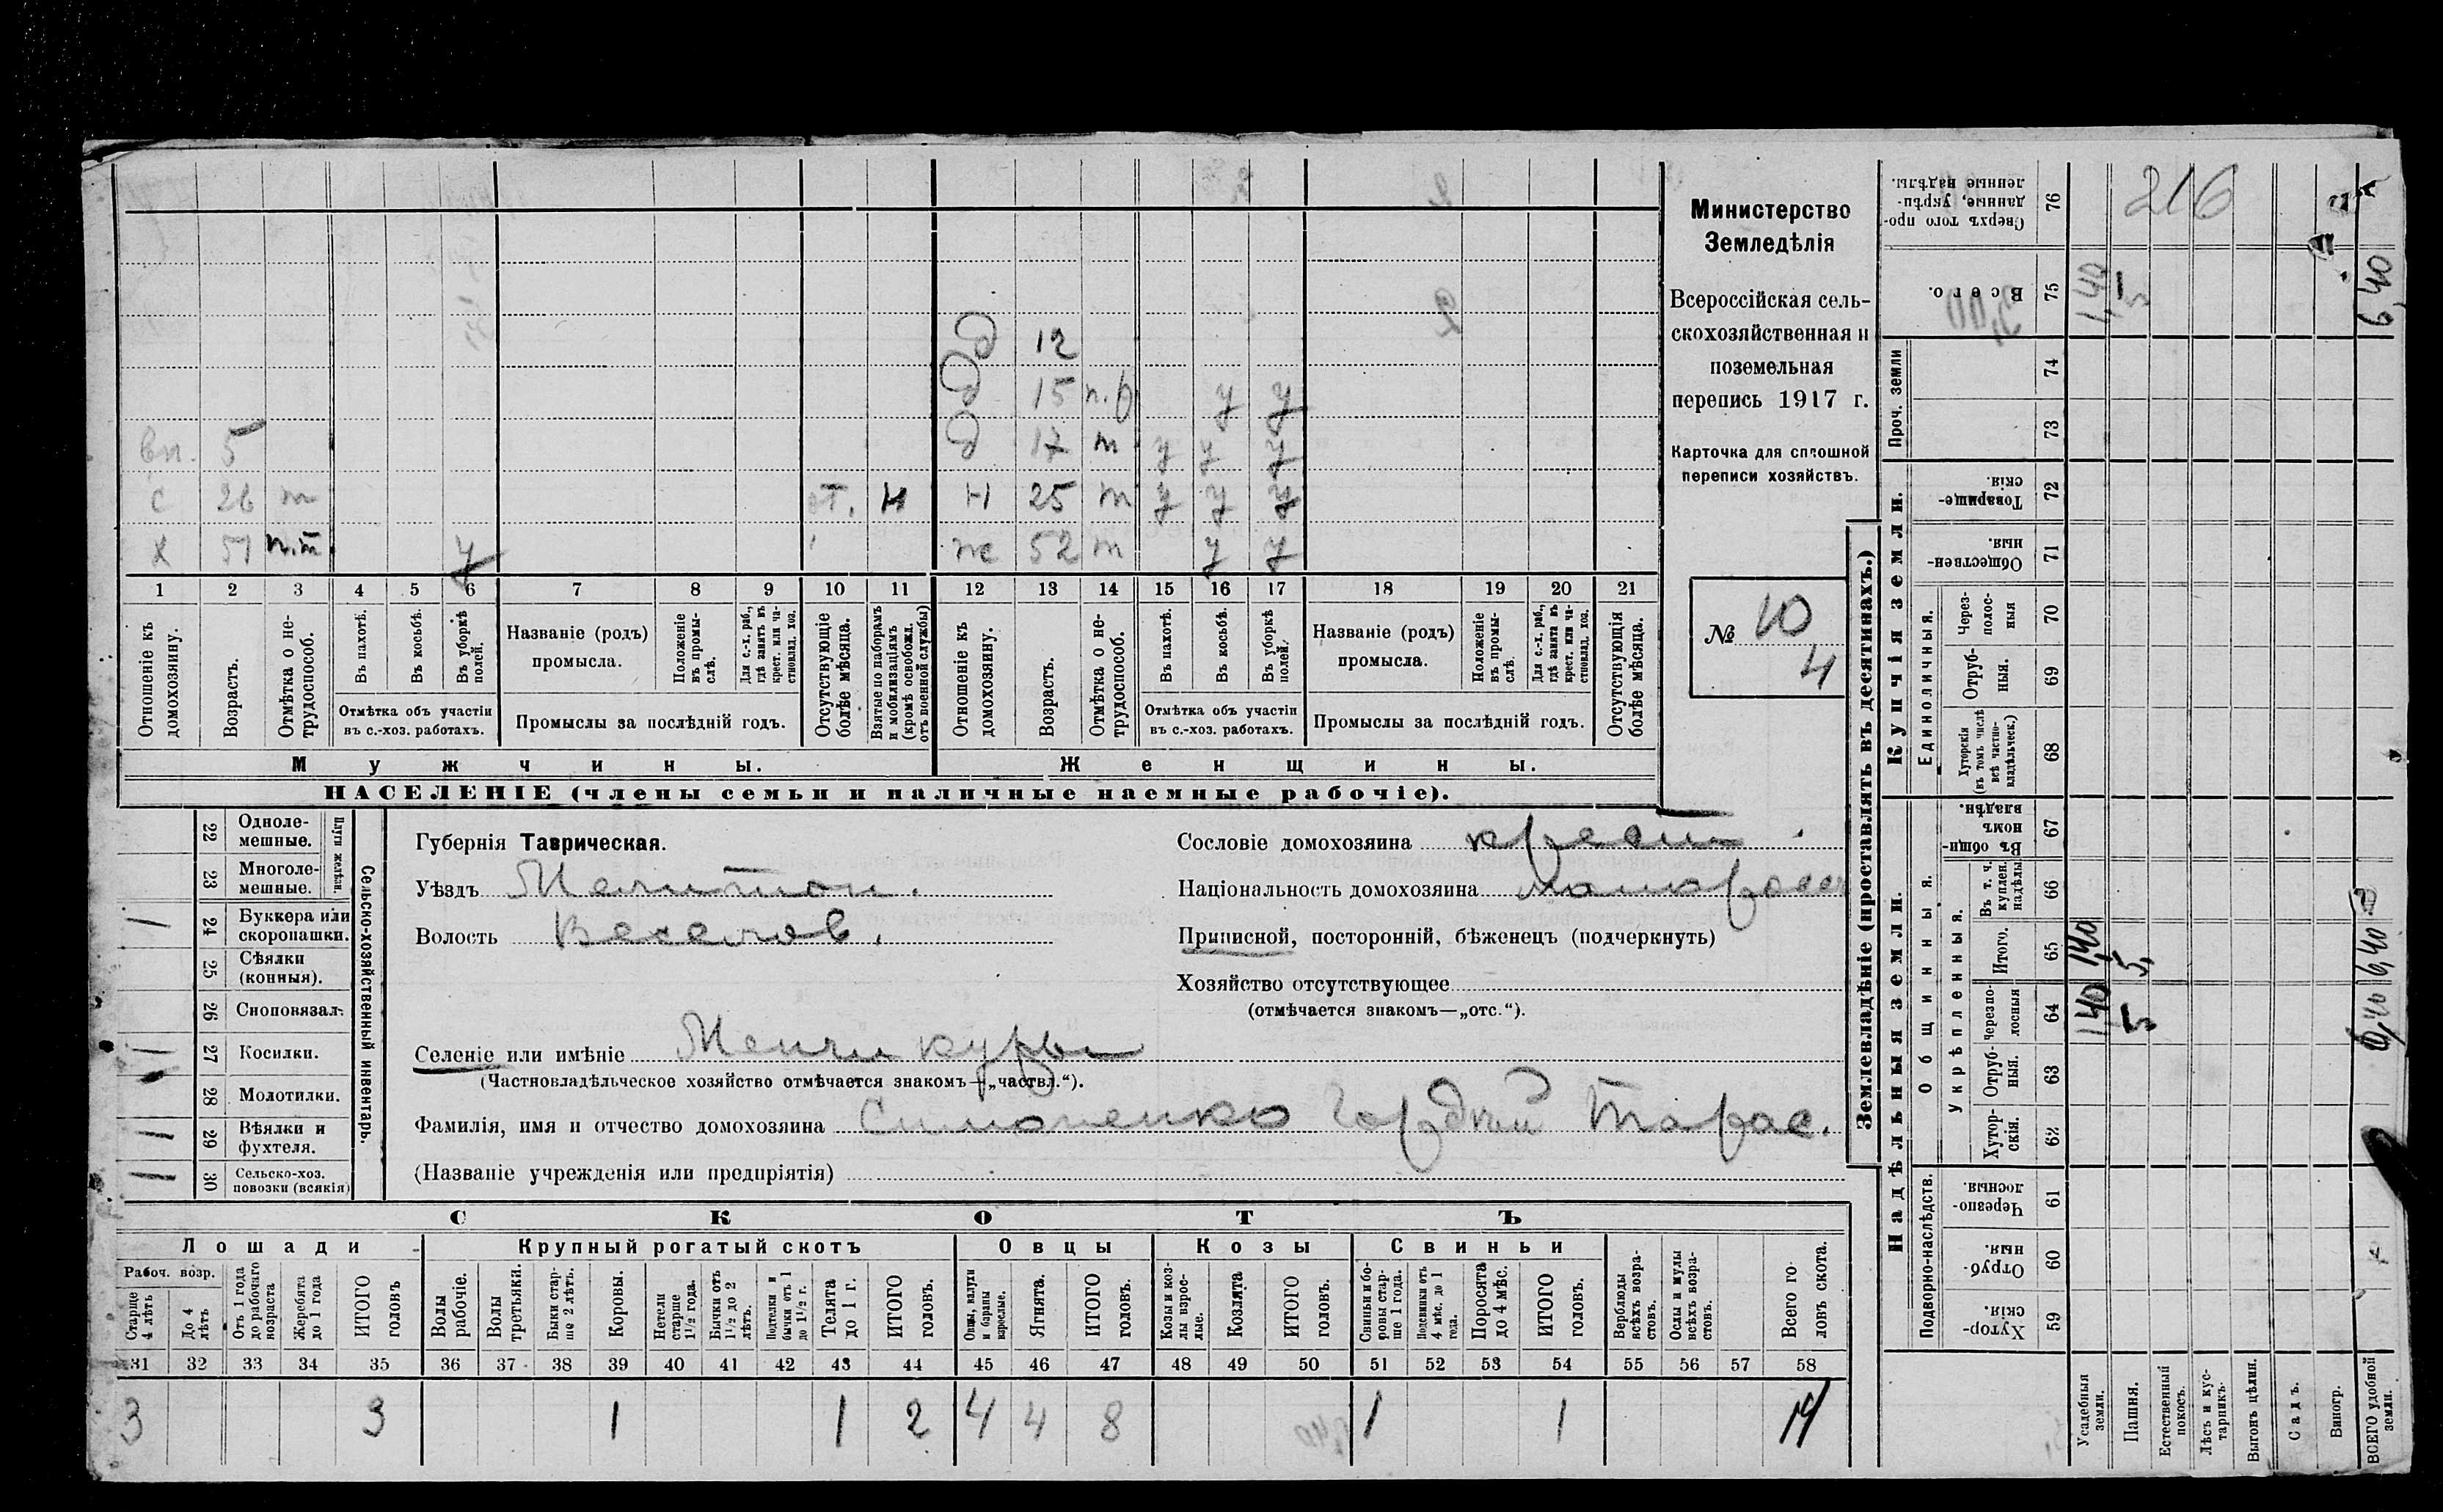 Министерство
Земледѣлія
Всероссійская сель-
скохозяйственная и
поземельная
перепись 1917 г.
Карточка для сплошной
переписи хозяйствъ.
№ 10
4
д 12
д 15 п.р у у
вп. 5 д 17 т у у у
с 26 т от. н н 25 т у у у
х 51 п.т. у ж 52 т у у
1 2 3 4 5 6 7 8 9 10 11 12 13 14 15 16 17 18 19 20 21
Отношеніе къ домохозяину.
Возрастъ.
Отмѣтка о не-трудоспособ.
Въ пахотѣ.
Въ косьбѣ.
Въ уборкѣ полей.
Отмѣтка объ участіи
въ с.-хоз. работахъ.
Названіе (родъ)
промысла.
Положеніе въ промы-слѣ.
Для с.-х. раб., гдѣ занятъ въ крест. или ча-стновлад. хоз.
Промыслы за послѣдній годъ.
Отсутствующіе болѣе мѣсяца.
Взятые по наборамъ и мобилизаціямъ (кромѣ освобожд. отъ военной службы)
Отношеніе къ домохозяину.
Возрастъ.
Отмѣтка о не-трудоспособ.
Въ пахотѣ.
Въ косьбѣ.
Въ уборкѣ полей.
Отмѣтка объ участіи
въ с.-хоз. работахъ.
Названіе (родъ)
промысла.
Положеніе въ промы-слѣ.
Для с.-х. раб., гдѣ занята въ крест. или ча-стновлад. хоз.
Промыслы за послѣдній годъ.
Отсутствующія болѣе мѣсяца.
Мужчины. Женщины.
НАСЕЛЕНІЕ (члены семьи и наличные наемные рабочіе).
Сельско-хозяйственный инвентарь.
Плуги желѣзн.
22 Одноле-
мешные.
23 Многоле-
мешные.
24 Буккера или
скоропашки.
25 Сѣялки
(конныя).
26 Сноповязал.
27 Косилки.
28 Молотилки.
29 Вѣялки и
фухтеля.
30 Сельско-хоз.
повозки (всякія)
Губернія Таврическая.
Уѣздъ Мелитоп.
Волость Веселов.
Сословіе домохозяина крест.
Національность домохозяина малоросс
Приписной, посторонній, бѣженецъ (подчеркнуть)
Хозяйство отсутствующее
(отмѣчается знакомъ—„отс.“).
Селеніе или имѣніе Менчикуры
(Частновладѣльческое хозяйство отмѣчается знакомъ—„частвл.“).
Фамилія, имя и отчество домохозяина Симоненко Гордѣй Тарас.
(Названіе учрежденія или предпріятія)
СКОТЪ
Лошади Крупный рогатый скотъ Овцы Козы Свиньи
Рабоч. возр.
Старше 4 лѣтъ
До 4 лѣтъ
Отъ 1 года до рабочаго возраста
Жеребята до 1 года
ИТОГО головъ
Волы рабочіе.
Волы третьяки.
Быки стар-ше 2 лѣтъ.
Коровы.
Нетели старше 1 1/2 года.
Бычки отъ 1 1/2 до 2 лѣтъ.
Подтелки и бычки отъ 1 до 1 1/2 г.
Телята до 1 г.
ИТОГО головъ.
Овцы, валухи и бараны взрослые.
Ягнята.
ИТОГО головъ.
Козы и коз-лы взрос-лые.
Козлята
ИТОГО головъ.
Свиньи и бо-ровы стар-ше 1 года.
Подсвинки отъ 4 мѣс. до 1 года.
Поросята до 4 мѣс.
ИТОГО головъ.
Верблюды всѣхъ возра-стовъ.
Ослы и мулы всѣхъ возра-стовъ.
Всего го-ловъ скота.
31 32 33 34 35 36 37 38 39 40 41 42 43 44 45 46 47 48 49 50 51 52 53 54 55 56 57 58
3 3 1 1 2 4 4 8 1 1 14
Землевладѣніе (проставлять въ десятинахъ.)
Надѣльныя земли. Купчія земли. Проч. земли
Подворно-наслѣдств. Общинныя. Единоличныя.
Укрѣпленныя.
59 Хутор-скія.
60 Отруб-ныя.
61 Черезпо-лосныя.
62 Хутор-скія.
63 Отруб-ныя.
64 Черезпо-лосныя
65 Итого.
66 Въ т. ч. куплен. надѣлы
67 Въ общин-номъ владѣн.
68 Хуторскія (въ томъ числѣ всѣ частно-владѣльческ.)
69 Отруб-ныя.
70 Через-полос-ныя
71 Обществен-ныя.
72 Товарище-скія.
73
74
75 Всего.
76 Сверхъ того про-данные, укрѣп-ленные надѣлы.
Усадебныя земли. 1,40 1,40 1,40
Пашня. 5 5, 5
Естественный покосъ.
Лѣсъ и кус-тарникъ.
Выгонъ цѣлин.
Садъ.
Виногр.
ВСЕГО удобной земли. 6,40 6,40 6,40
216